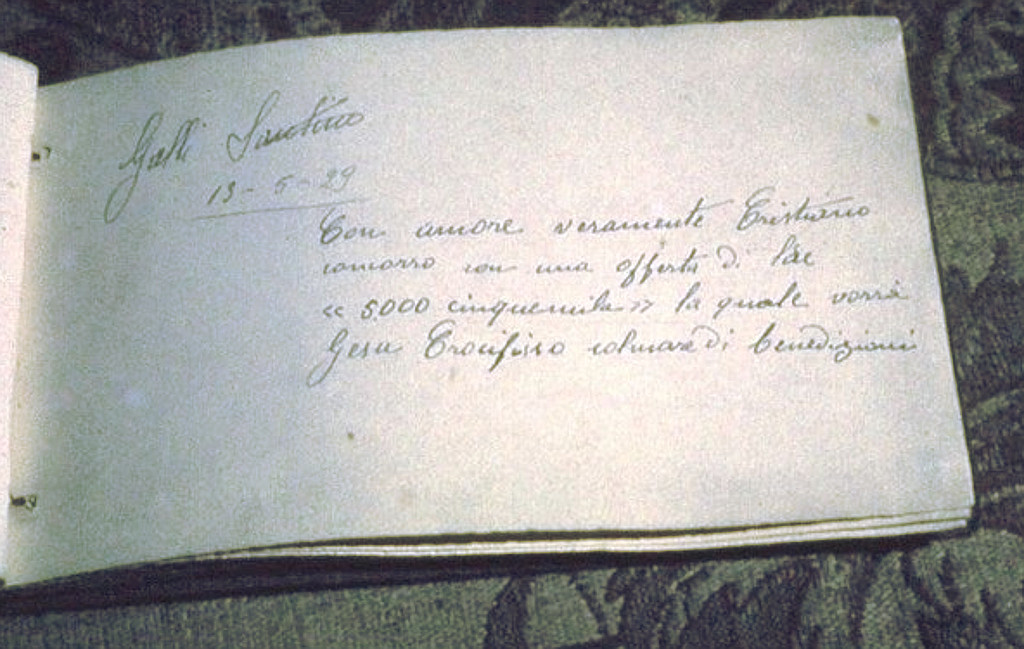 Galli Santino
13-5-29
Con amore veramente Cristiano
concorro con una offerta di Lire
« 5.000 cinquemila » la quale vorrà
Gesu Crocifisso colmare di benedizioni